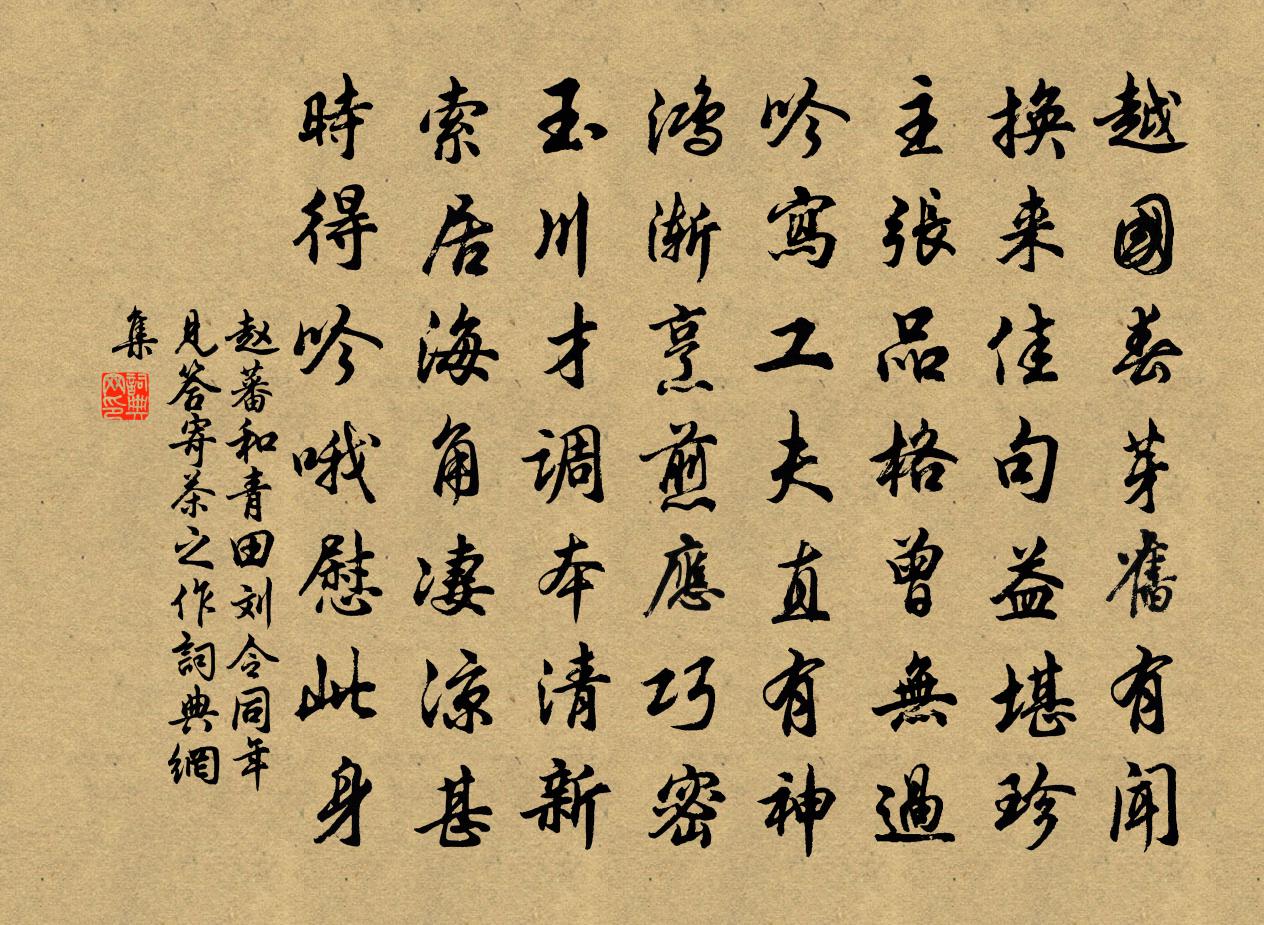 越國春芽舊有聞
換来佳句益堪珍
主張品格曾無過
吟寫工夫直有神
鸿漸烹煎應巧密
玉川才調本清新
索居海角凄凉甚
時得吟哦慰此身
赵蕃和青田刘令同年
見答寄茶之作詞典網
集
詞典網印